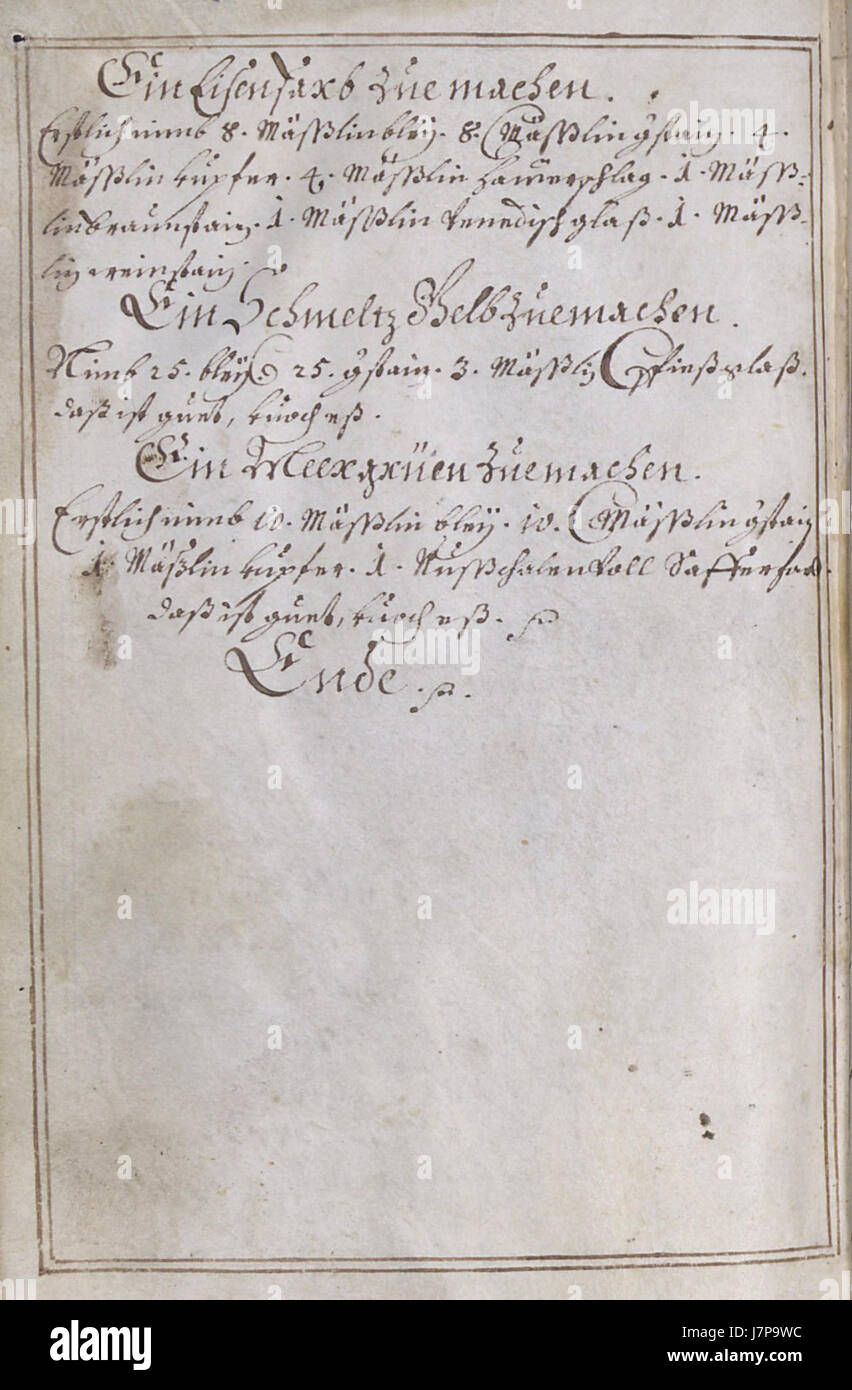 Ein Eisenfarb zue machen.
Erstlich nimb 8. Mässlin bley. 8. Mässlin gstain. 4.
Mässlin kupfer. 4. Mässlin hamerschlag. 1. Mäss-
lin braunstain. 1. Mässlin Venedisch glaß. 1. Mäss-
lin weinstain.
Ein Schmeltz Gelb zue machen.
Nimb 25. bley. 25. gstain. 3. Mässlin
daß ist guet, koch eß.
Ein Meergrüen zue machen.
Erstlich nimb 10. Mässlin bley. 10. Mässlin gstain
1. Mäßlin kupfer. 1. Nussschalen voll
daß ist guet, koch eß.
Ende.
alamy
a
alamy
Image ID: J7P9WC
www.alamy.com